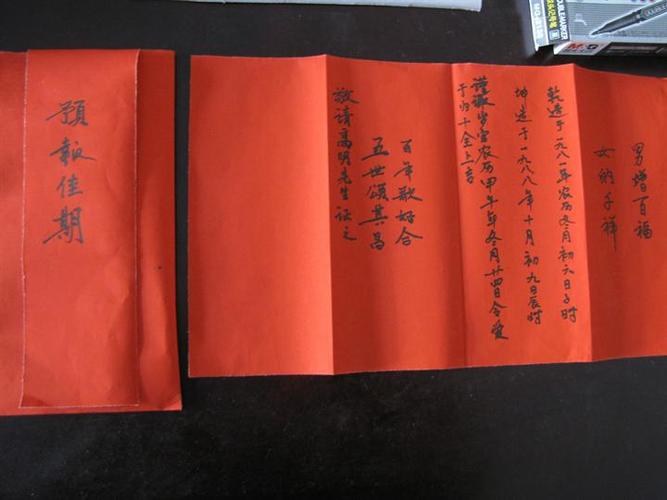 預報佳期
男增百福
女纳千祥
乾造于一九八一年农历冬月初六日子时
坤造于一九八八年十月初九日辰时
谨诹岁宫农历甲午年冬月廿四日令爱
于归十全上吉
百年歌好合
五世颂其昌
敬请高明先生证之
M&G